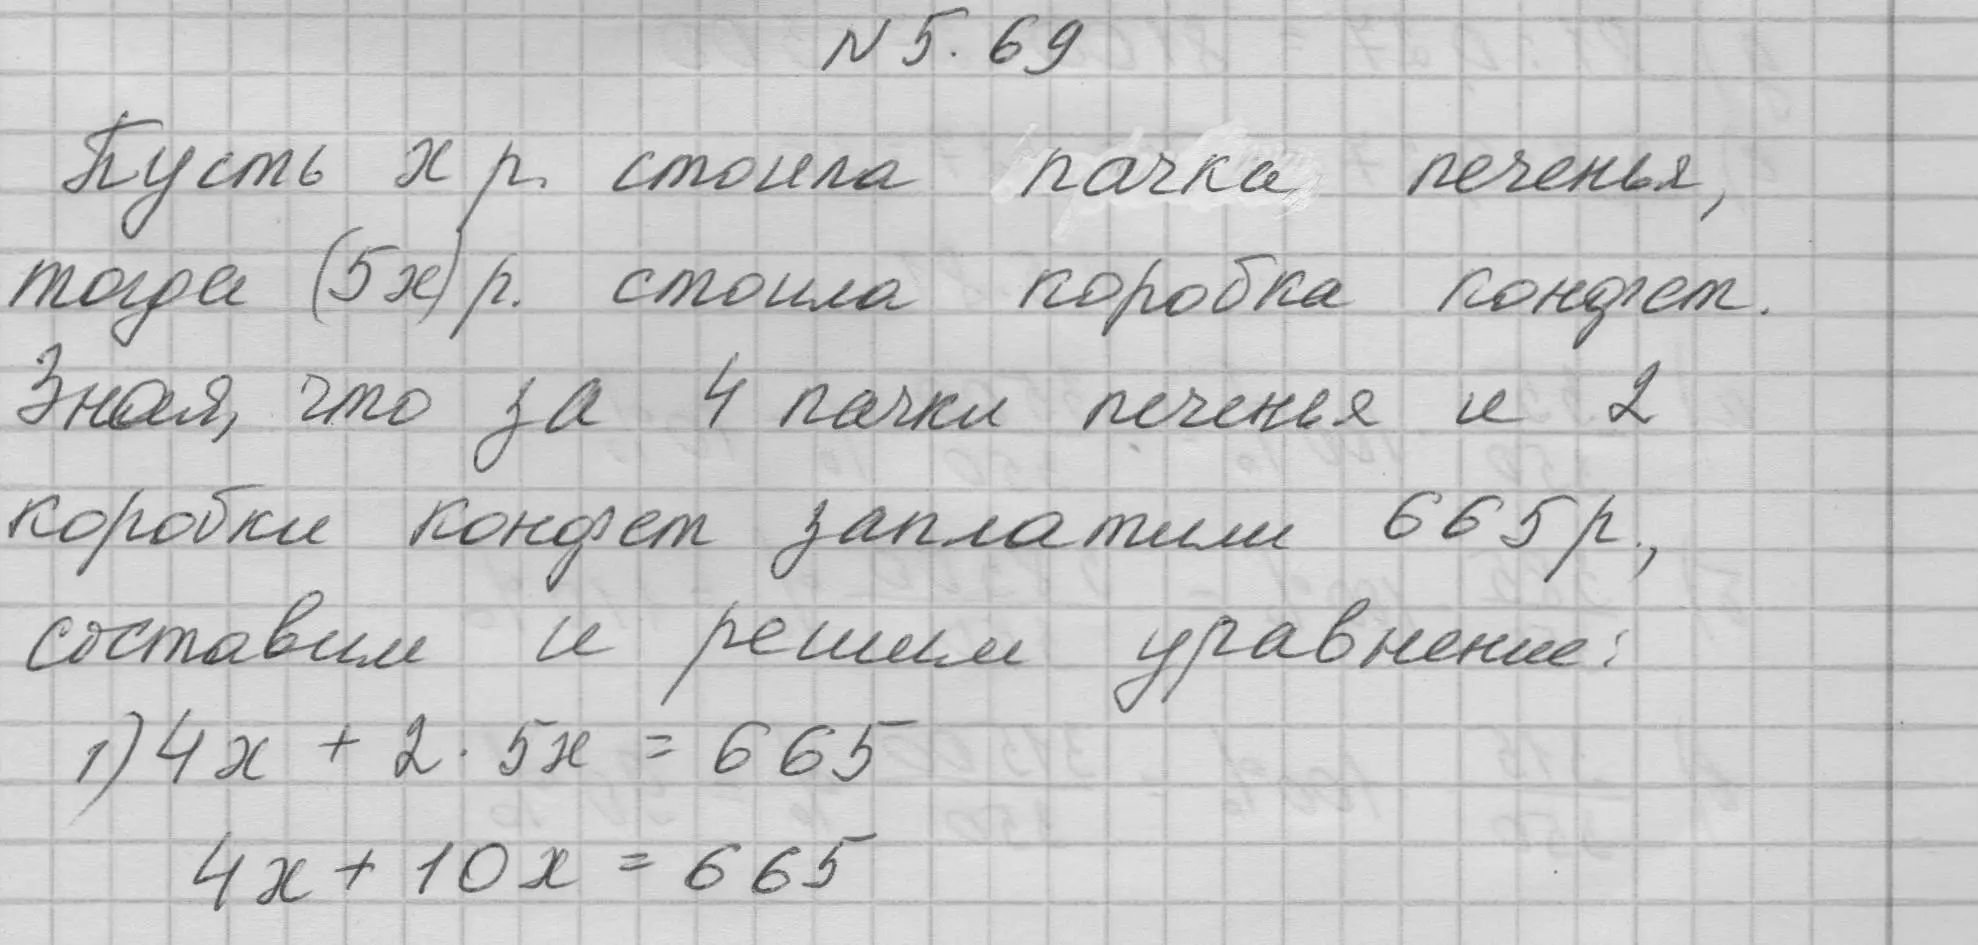 № 5.69
Пусть x р. стоила пачка печенья,
тогда (5x) р. стоила коробка конфет.
Зная, что за 4 пачки печенья и 2
коробки конфет заплатили 665 р.,
составим и решим уравнение:
1) 4x + 2 · 5x = 665
4x + 10x = 665